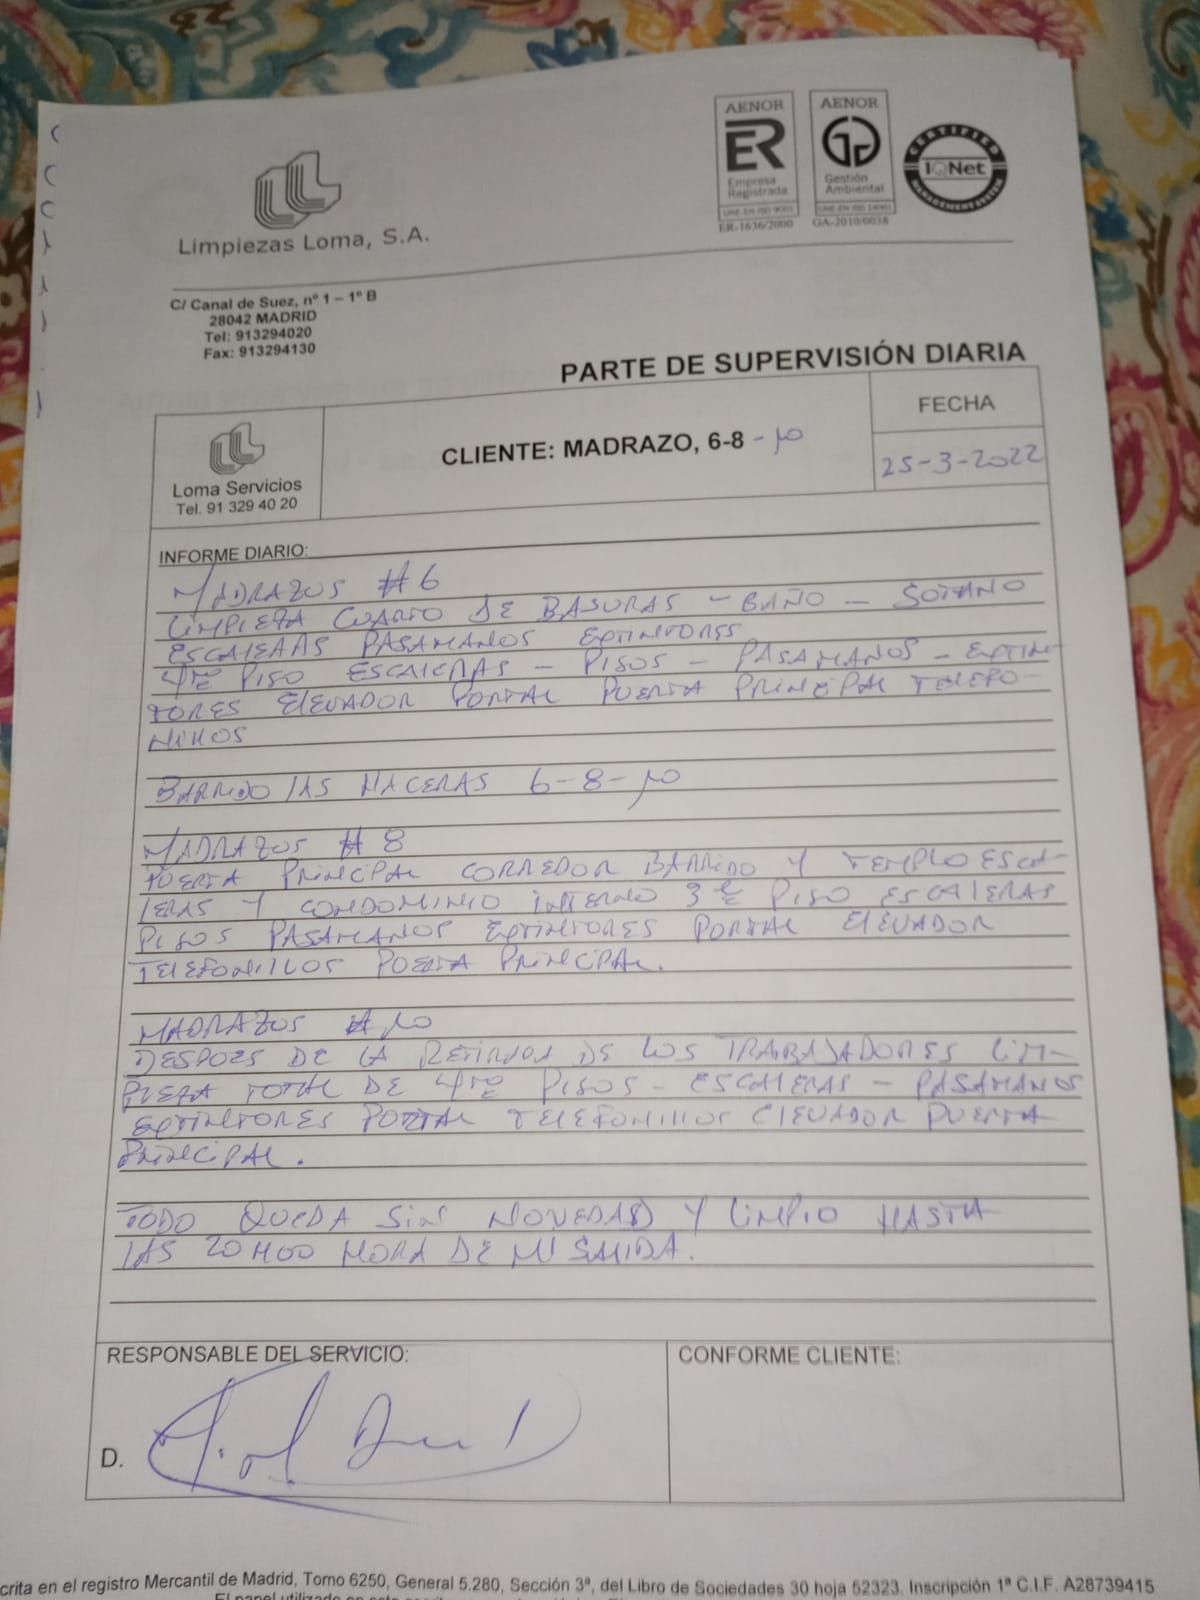 Limpiezas Loma, S.A.
AENOR
ER
Empresa
Registrada
UNE-EN ISO 9001
ER-1636/2000
AENOR
Gestión
Ambiental
UNE-EN ISO 14001
GA-2010/0038
CERTIFIED
IQNet
MANAGEMENT SYSTEM
C/ Canal de Suez, nº 1 – 1º B
28042 MADRID
Tel: 913294020
Fax: 913294130
PARTE DE SUPERVISIÓN DIARIA
Loma Servicios
Tel. 91 329 40 20
CLIENTE: MADRAZO, 6-8 - 10
FECHA
25-3-2022
INFORME DIARIO:
MADRAZOS #6
LIMPIEZA CUARTO DE BASURAS - BAÑO - SOTANO
ESCALERAS PASAMANOS EXTINTORES
4TO PISO ESCALERAS - PISOS - PASAMANOS - EXTIN-
TORES ELEVADOR PORTAL PUERTA PRINCIPAL TELEFO-
NIKOS
BARRIDO LAS HACERAS 6-8-10
MADRAZOS #8
PUERTA PRINCIPAL CORREDOR BARRIDO Y TEMPLO ESCA-
LERAS Y CONDOMINIO INTERNO 3 PISO ESCALERAS
PISOS PASAMANOS EXTINTORES PORTAL ELEVADOR
TELEFONILLOS PUERTA PRINCIPAL.
MADRAZOS #10
DESPUES DE LA RETIRADA DE LOS TRABAJADORES LIM-
PIEZA TOTAL DE 4TO PISOS - ESCALERAS - PASAMANOS
EXTINTORES PORTAL TELEFONILLOS ELEVADOR PUERTA
PRINCIPAL.
TODO QUEDA SIN NOVEDAD Y LIMPIO HASTA
LAS 20H00 HORA DE MI SALIDA.
RESPONSABLE DEL SERVICIO:
D.
CONFORME CLIENTE:
crita en el registro Mercantil de Madrid, Tomo 6250, General 5.280, Sección 3ª, del Libro de Sociedades 30 hoja 52323. Inscripción 1ª C.I.F. A28739415
El papel utilizado en este